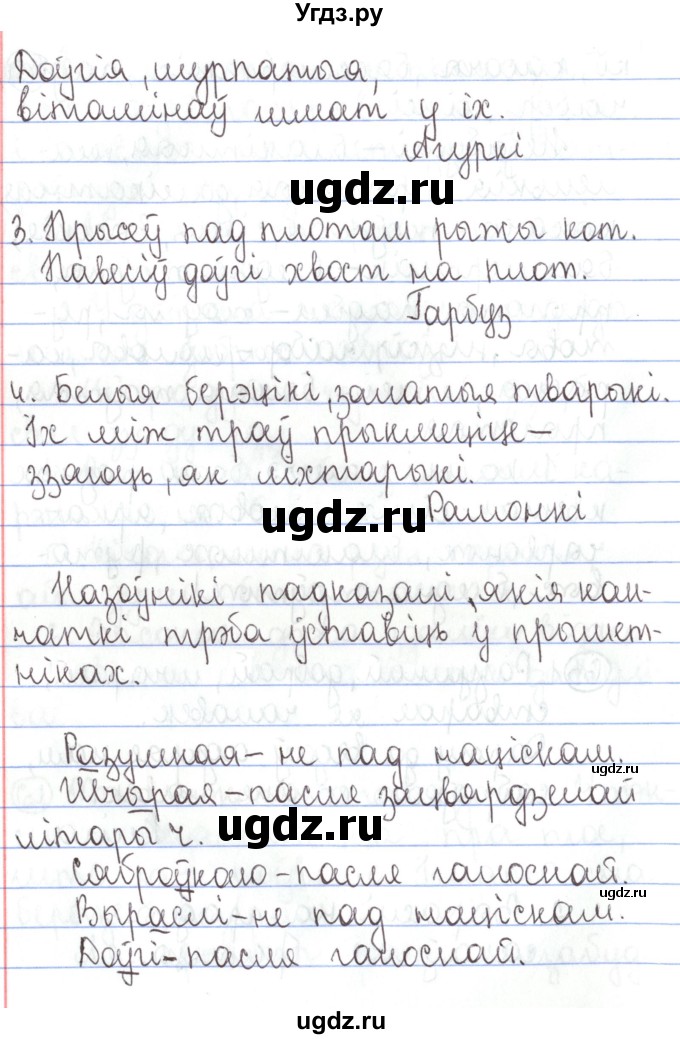 Угдз.ру
Доўгія, шурпатыя,
вітамінаў шмат у іх.
Агуркі
ugdz.ru
3. Прысеў пад плотам рыты кот.
Павесіў доўгі хвост на плот.
Гарбуз
4. Белыя берэцікі, залатыя тварыкі.
Іх між траў прыкмеціце –
ззяюць, як ліхтарыкі.
ugdz.ru
Рамонкі
Назоўнікі падказалі, якія кан-
чаткі трэба ўставіць у прымет-
ніках.
Разумная – не пад націскам.
ugdz.ru
Шчырая – пасля зацвярдзелай
літары ч.
ugdz.ru
Сяброўкаю – пасля галоснай.
ugdz.ru
Выраслі – не пад націскам.
Доўгі – пасля галоснай.
ugdz.ru